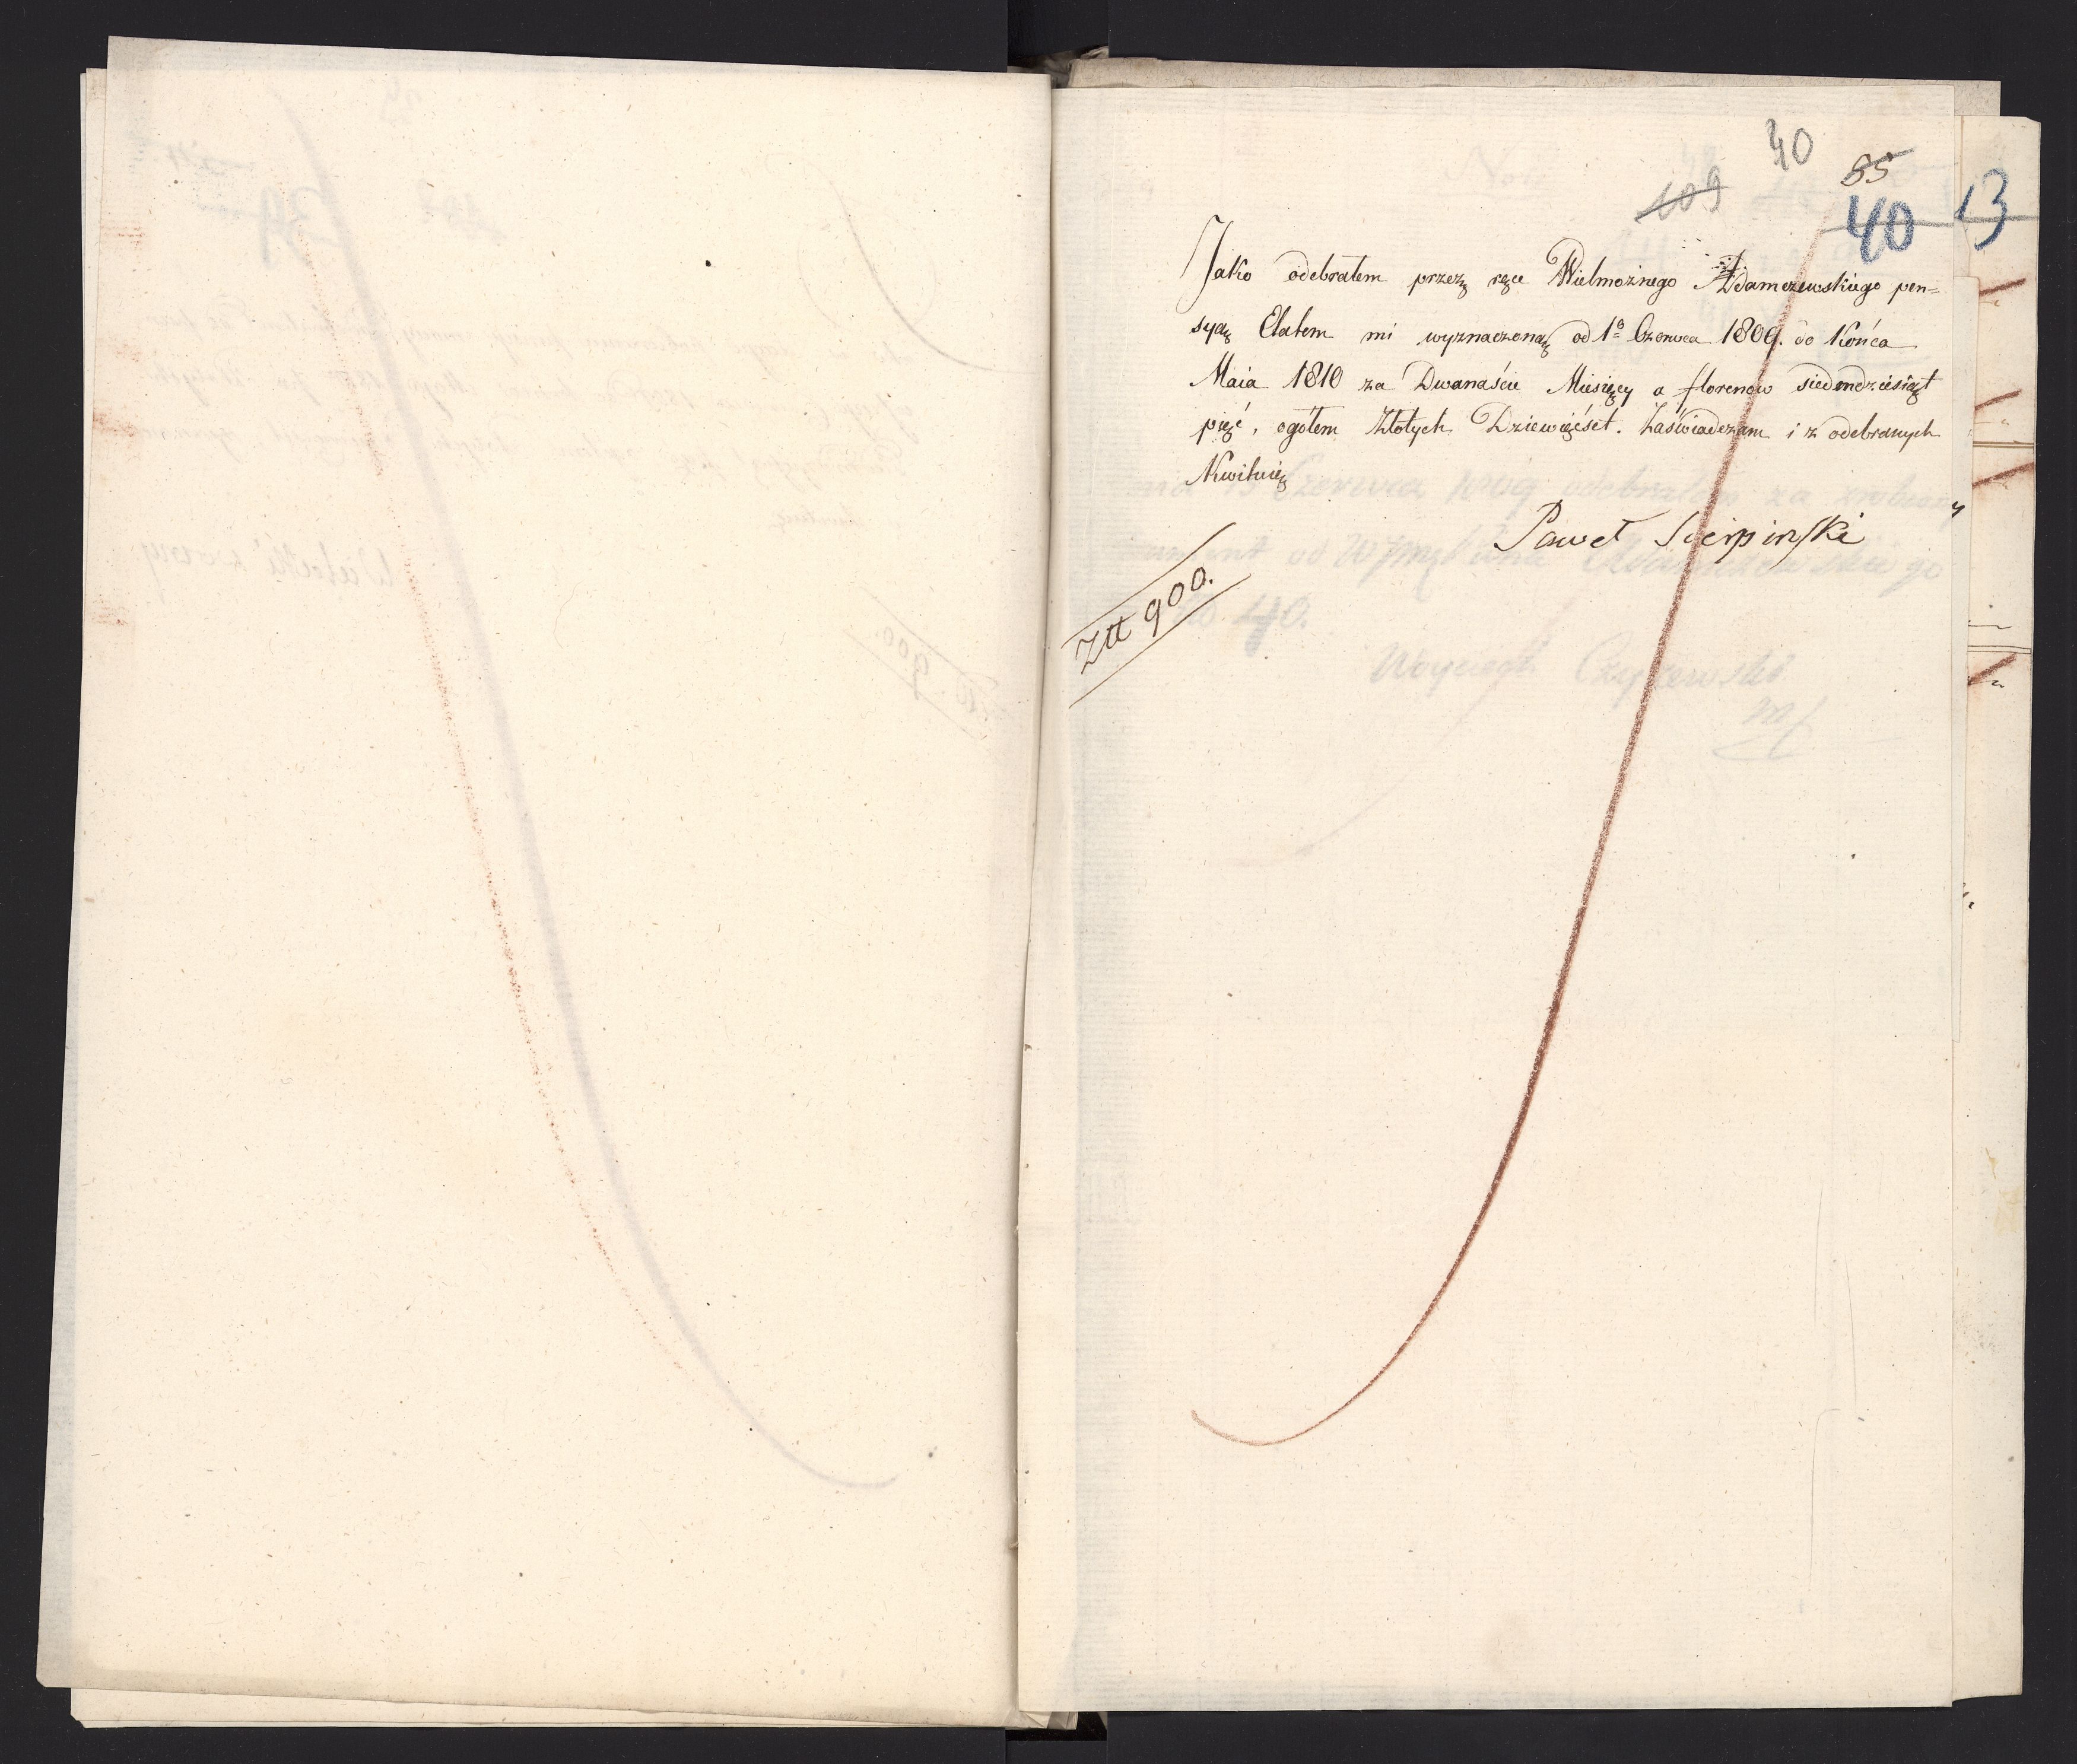 40
109
85
40
13
Jako odebrałem przezę ręce Wielmożnego Adamczewskiego pen=
syą Etatem mi wyznaczoną od 1º Czerwca 1809. do Końca
Maia 1810 za Dwanaście Miesięcy a florenow siedmdziesiąt
pięć, ogółem Złotych Dziewięćset. Zaświadczam i z odebranych
Kwituię
Paweł Sierpinski
Złt 900.